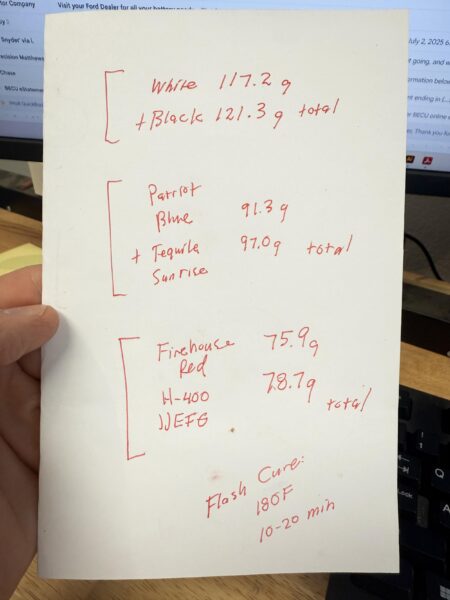 for Company
Visit your Ford Dealer for all your battery needs.
Snyder via i.
July 2, 2025
ecision Matthews
got going, and w
Chase
ormation below
BECU eStatement
ent ending in (...)
BECU online
Thank you fo
White 117.2 g
+ Black 121.3 g total
Patriot
Blue 91.3 g
+ Tequila 97.0 g total
Sunrise
Firehouse 75.9 g
Red
H-400 78.7 g total
JJEFG
Flash Cure:
180F
10-20 min
Lock
Q
A